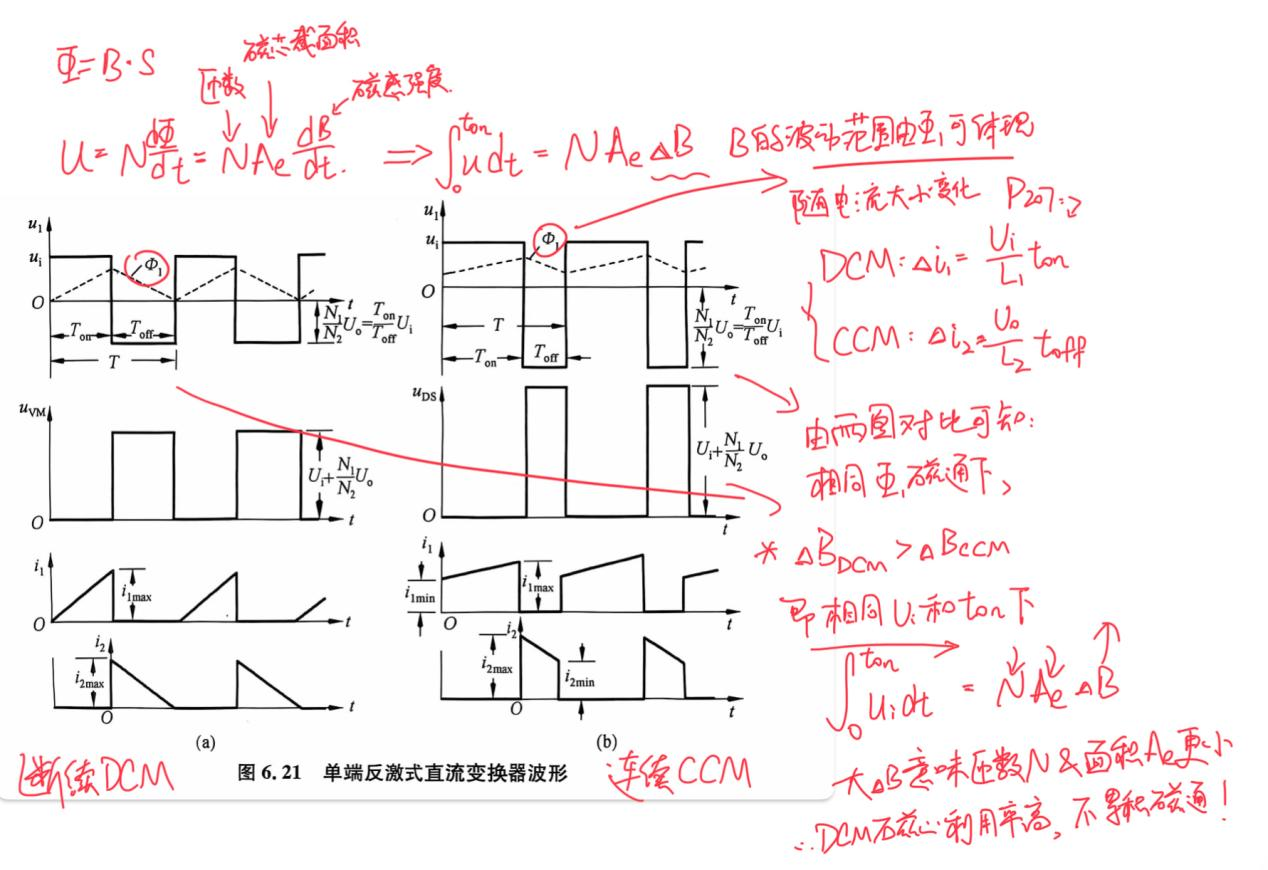 Φ=B·S
磁芯截面积
匝数
磁感强度
U= N dΦ/dt = NAe dB/dt. ⇒ ∫₀^ton u dt = NAeΔB
B的波动范围由Φ₁可体现
随电流大小变化 P207:
DCM:Δi₁= Ui/L₁ ton
CCM:Δi₂= Uo/L₂ toff
由两图对比可知:
相同Φ₁磁通下,
* ΔB_DCM > ΔB_CCM
即相同Ui和ton下
∫₀^ton Ui dt = NAeΔB
大ΔB意味匝数N&面积Ae更小
∴DCM磁心利用率高,不累积磁通!
u₁
ui
Φ₁
O
t
Ton
Toff
T
N₁/N₂ Uo=Ton/Toff Ui
uVM
Ui+N₁/N₂ Uo
O
t
i₁
i1max
O
t
i₂
i2max
O
t
(a)
u₁
ui
Φ₁
O
t
T
Ton
Toff
N₁/N₂ Uo=Ton/Toff Ui
uDS
Ui+N₁/N₂ Uo
O
t
i₁
i1min
i1max
O
t
i₂
i2max
i2min
O
t
(b)
断续DCM
图 6.21 单端反激式直流变换器波形
连续CCM